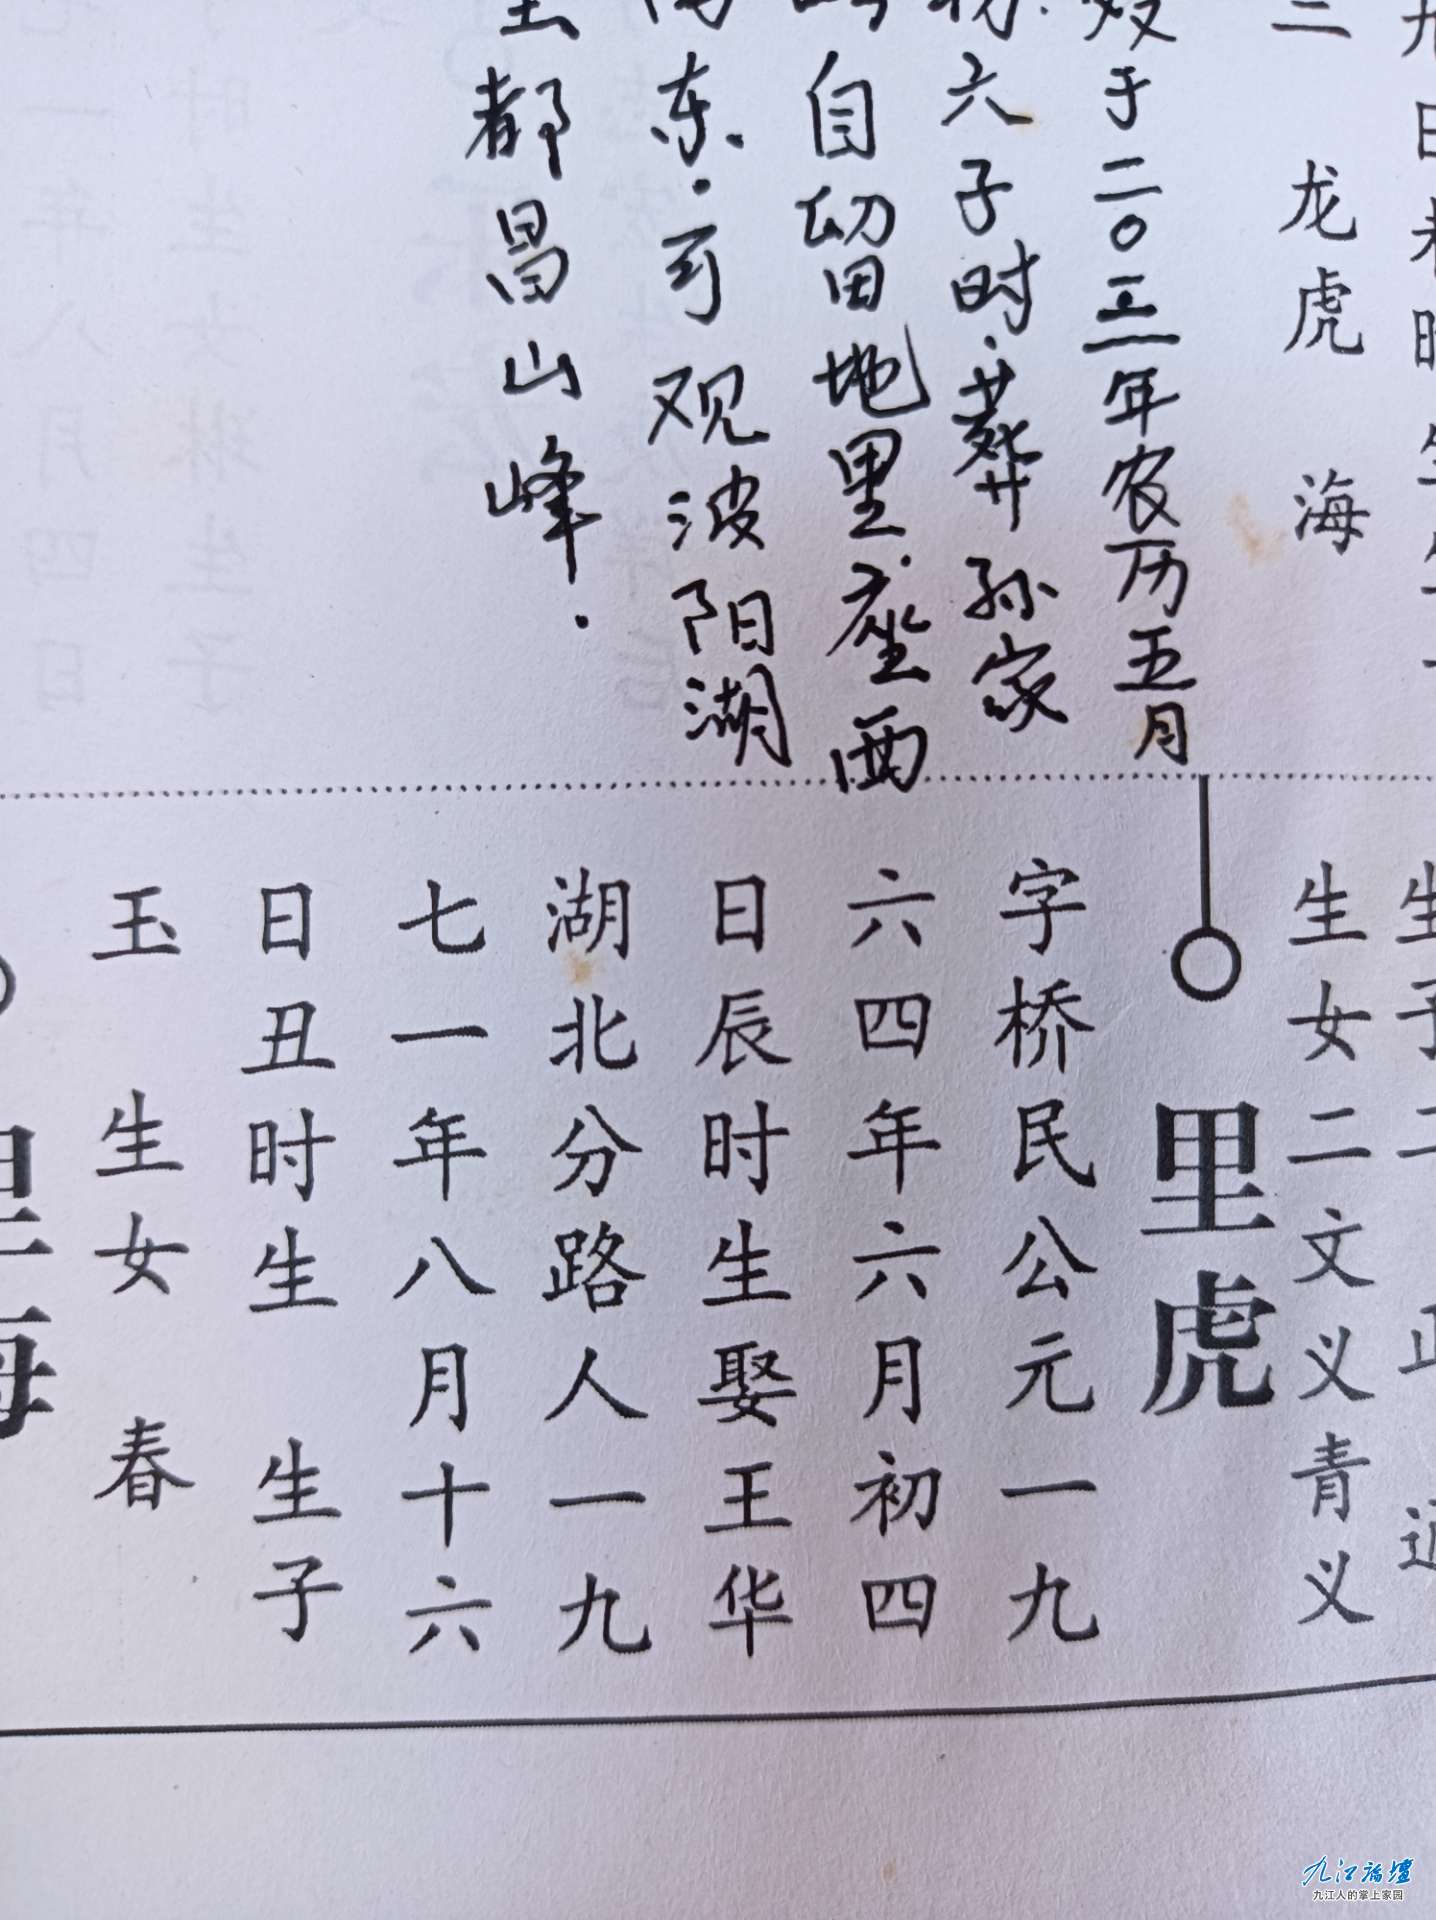 九日未时生
三 龙虎 海
殁于二〇二三年农历五月
初六子时.葬孙家
自留地里.座西
东.可观波阳湖
至都昌山峰.
生子二正
生女二文义青义
里虎
字桥民公元一九
六四年六月初四
日辰时生娶王华
湖北分路人一九
七一年八月十六
日丑时生 生子
玉 生女 春
里海
九江论坛
九江人的掌上家园